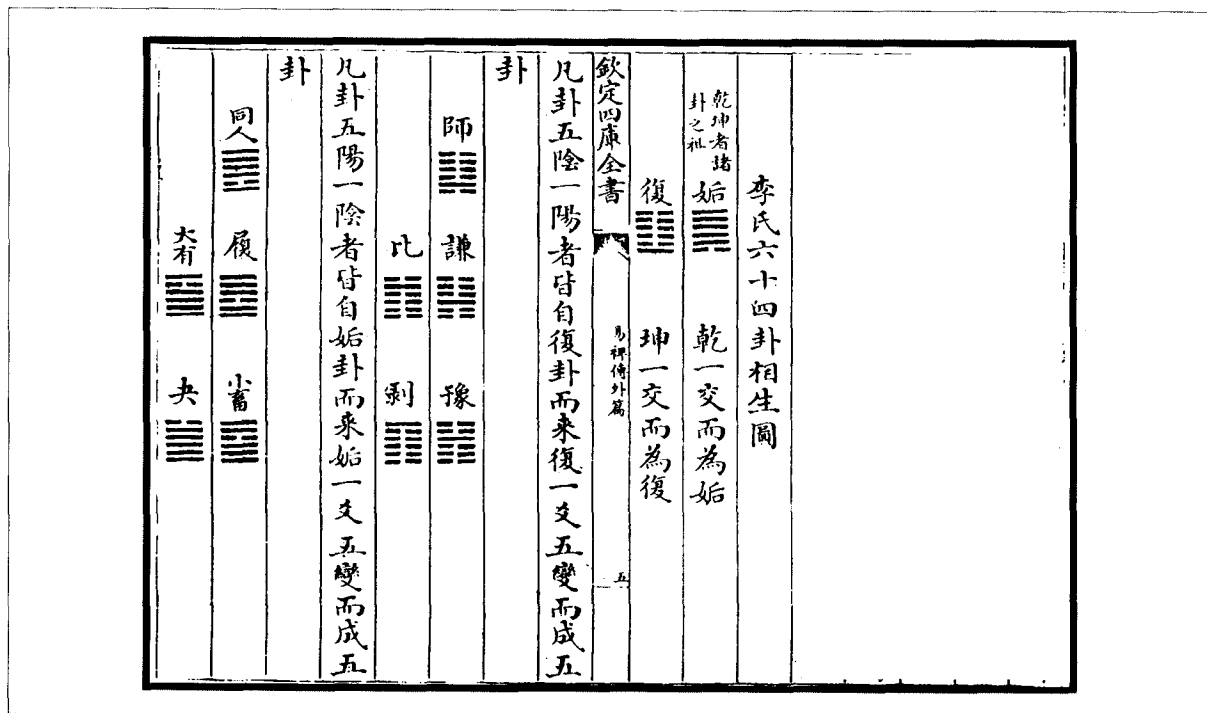 李氏六十四卦相生圖
乾坤者諸卦之祖 姤 乾一交而為姤
復 坤一交而為復
欽定四庫全書 易裨傳外篇 五
凡卦五陰一陽者皆自復卦而來復一爻五變而成五
卦
師 謙 豫
比 剝
凡卦五陽一陰者皆自姤卦而来姤一爻五變而成五
卦
同人 履 小畜
大有 夬